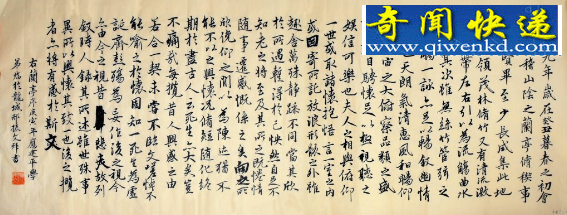 奇聞快递
www.qiwenkd.com
元年歲在癸丑暮春之初會
稽山陰之蘭亭脩禊事
賢畢至少長咸集此地
領茂林脩竹又有清流激
帶左右引以為流觴曲水
其次雖無絲竹管絃之
詠亦足以暢敘幽情
天朗氣清惠風和暢仰
宙之大俯察品類之盛
目騁懷足以極視聽之
娛信可樂也夫人之相與俯仰
一世或取諸懷抱悟言一室之內
或因寄所託放浪形骸之外雖
趣舍萬殊靜躁不同當其欣
於所遇蹔得於己快然自足不
知老之將至及其所之既惓情
隨事遷感慨係之矣向之所
欣俛仰之閒以為陳迹猶不
能不以之興懷況脩短隨化終
期於盡古人云死生亦大矣豈
不痛哉每攬昔人興感之由
若合一契未嘗不臨文嗟悼不
能喻之於懷固知一死生為虛
誕齊彭殤為妄作後之視今
亦由今之視昔悲夫故列
敘時人錄其所述雖世殊事
異所以興懷其致一也後之攬
者亦將有感於斯文
右蘭亭序 年 學
於龍城 書